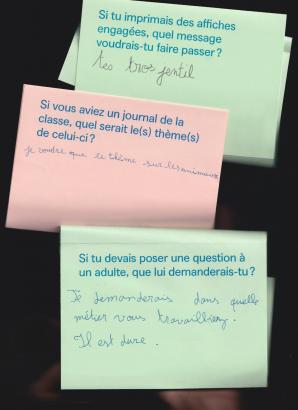 Si tu imprimais des affiches
engagées, quel message
voudrais-tu faire passer ?
tes tros jentil
Si vous aviez un journal de la
classe, quel serait le(s) thème(s)
de celui-ci ?
je voudre que le thème sur les animeux
Si tu devais poser une question à
un adulte, que lui demanderais-tu ?
Je demanderais dans quelle
métier vous travailliez.
Il est dure.